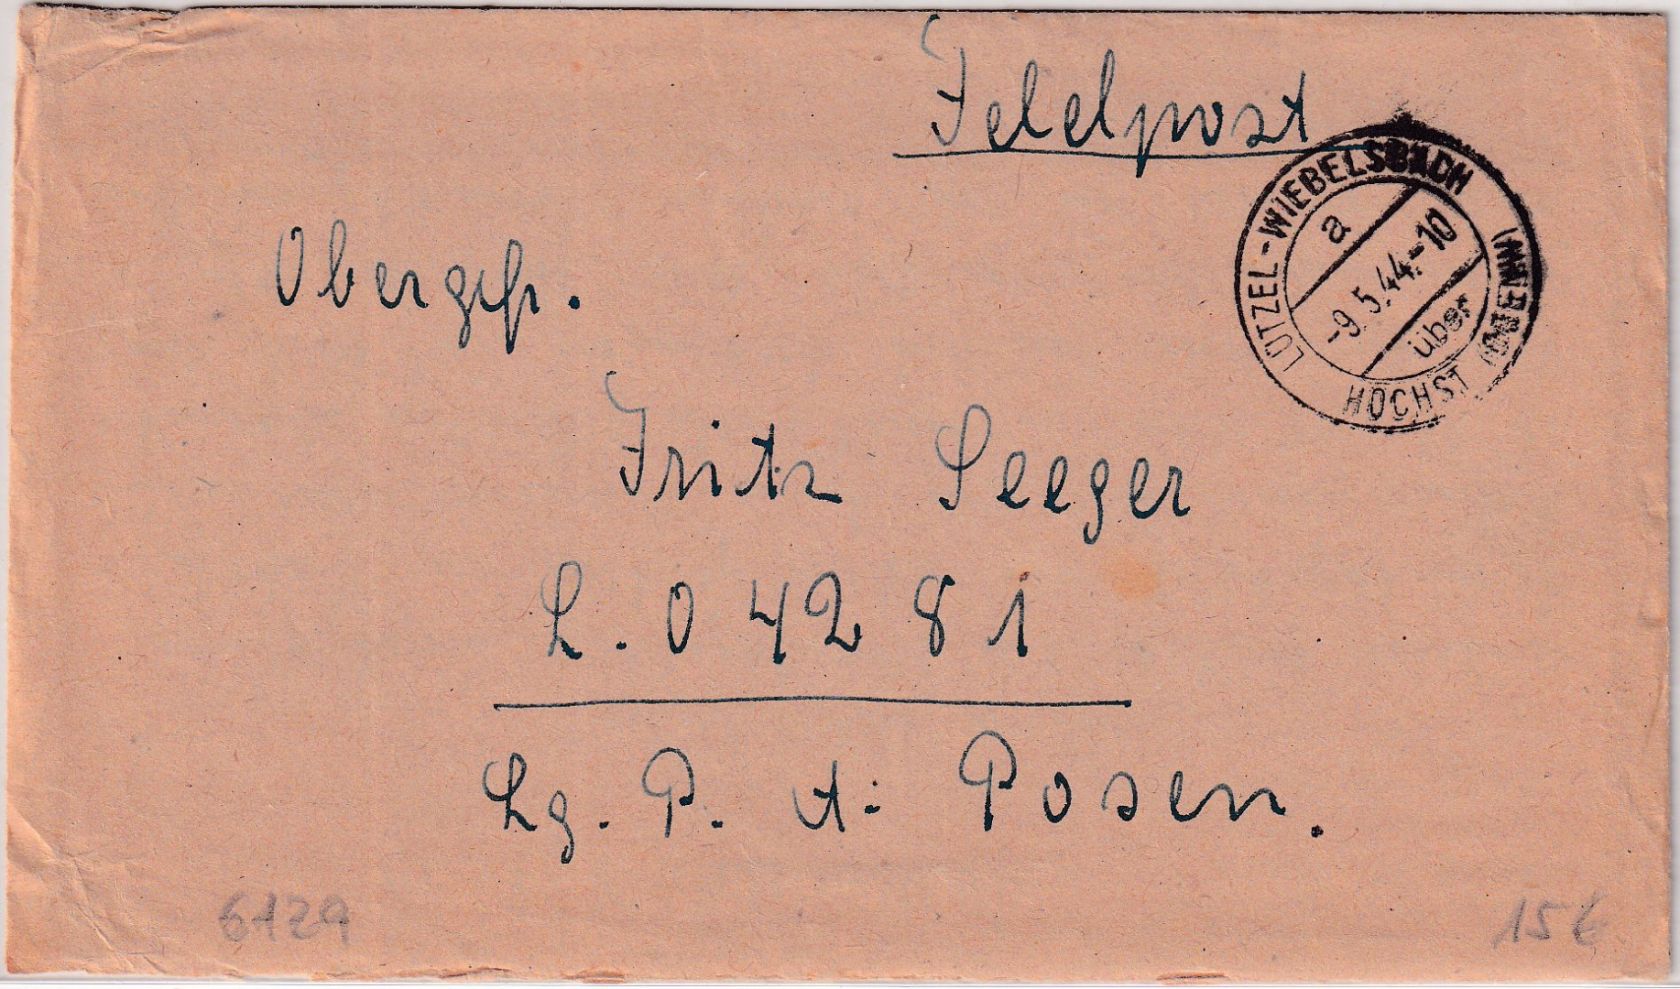 Feldpost
LÜTZEL-WIEBELSBACH
a
-9.5.44.-10
über
HÖCHST (ODENW)
Obergefr.
Fritz Seeger
L. 04281
Lg. P. A. Posen.
6129
15€